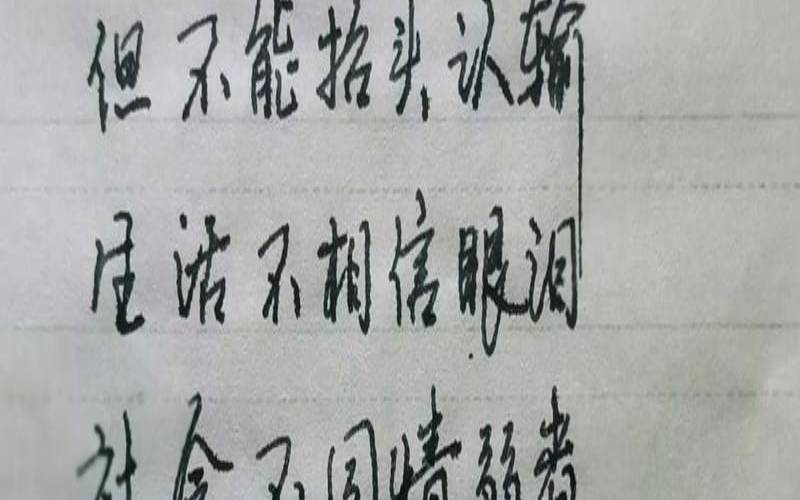 但不能抬头认输
生活不相信眼泪
社会不同情弱者